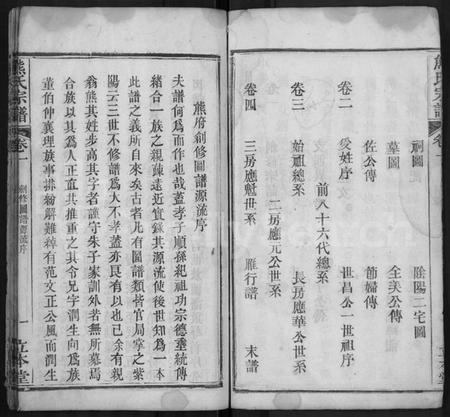 熊氏宗譜
卷一
祠圖 陰陽二宅圖
墓圖 全美公傳
佐公傳 節婦傳
卷二
受姓序 世昌公一世祖序
前八十六代總系
卷三
始祖總系 長房應華公世系
二房應元公世系
卷四
三房應魁世系 雁行譜 末譜
熊府創修圖譜源流序
夫譜何為而作也哉蓋孝子順孫紀祖功宗德垂統傳
緒合一族之親疎遠近實錄其源流使後世知為一本
此譜之義所自來矣古者凡有圖譜類皆官局掌之紫
陽云三世不修譜為人不孝蓋亦良有以也已余有親
翁熊其姓步高其字者謹守朱子家訓外若無所慕焉
合族以其為人正直共推重之其令兄字潤生向為族
董伯仲襄理族事排紛解難綽有范文正公風而潤生
熊氏宗譜
卷一
創修圖譜源流序
一
立本堂